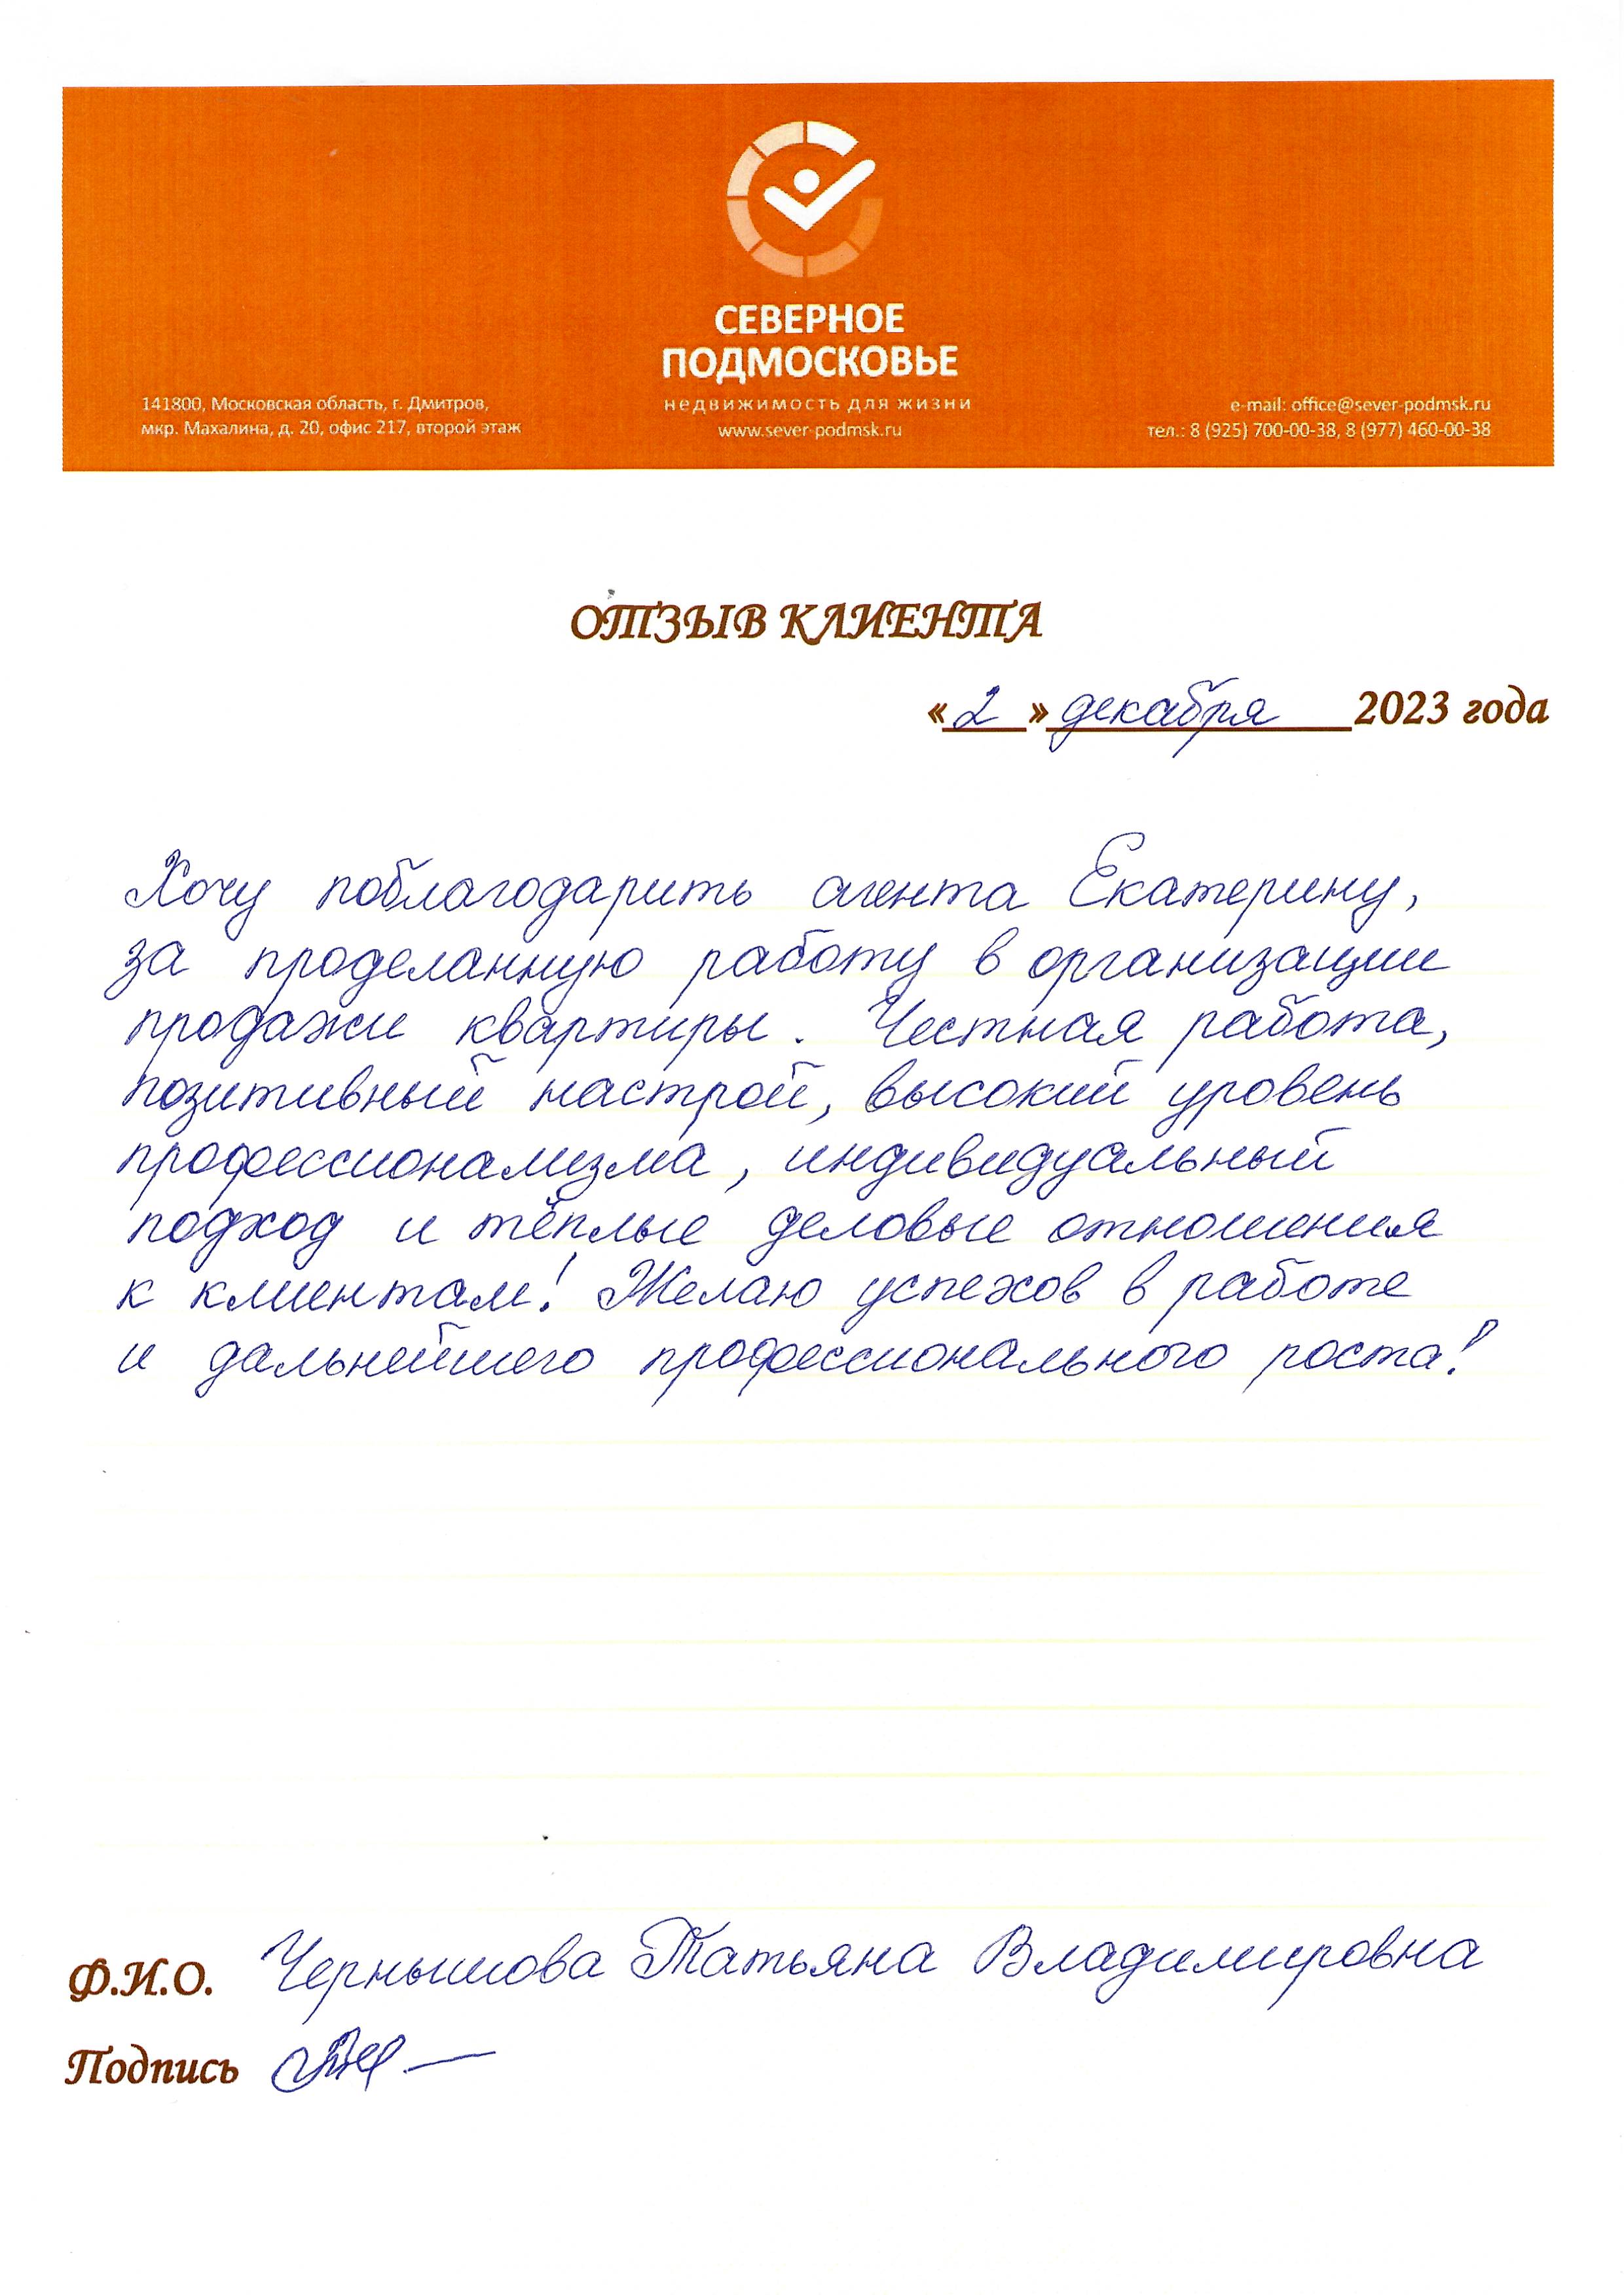 СЕВЕРНОЕ
ПОДМОСКОВЬЕ
недвижимость для жизни
www.sever-podmsk.ru
141800, Московская область, г. Дмитров,
мкр. Махалина, д. 20, офис 217, второй этаж
e-mail: office@sever-podmsk.ru
тел.: 8 (925) 700-00-38, 8 (977) 460-00-38
ОТЗЫВ КЛИЕНТА
«2» декабря 2023 года
Хочу поблагодарить агента Екатерину,
за проделанную работу в организации
продажи квартиры. Честная работа,
позитивный настрой, высокий уровень
профессионализма, индивидуальный
подход и тёплые деловые отношения
к клиентам! Желаю успехов в работе
и дальнейшего профессионального роста!
Ф.И.О. Чернышова Татьяна Владимировна
Подпись